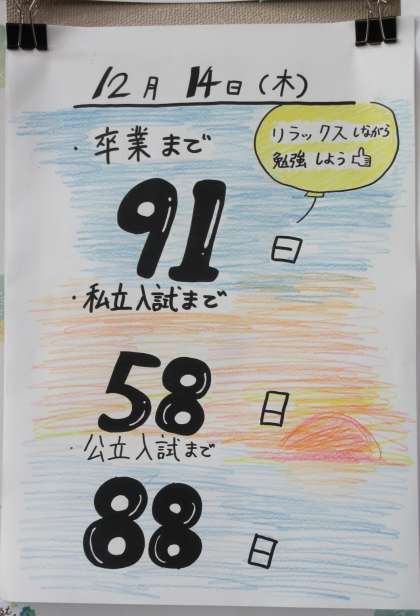 12月 14日(木)
リラックスしながら
勉強しよう
・卒業まで
91日
・私立入試まで
58日
・公立入試まで
88日